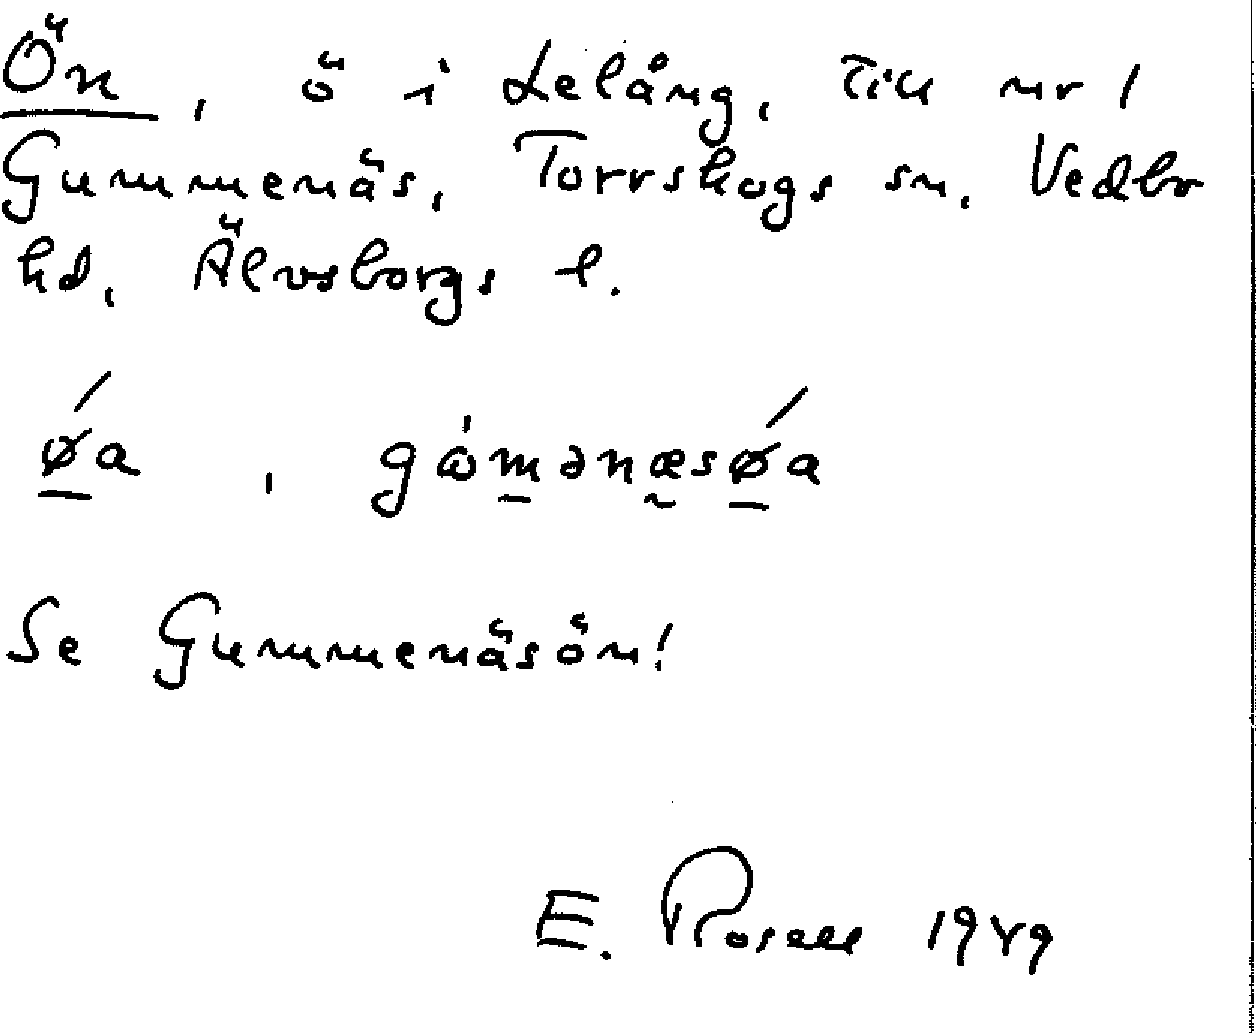 Ön, ö i Lelång, till nr 1
Gummenäs, Torrskogs sn, Vedbo
hd, Älvsborgs l.
ǿ̱a, gȯm̱ənæ̰sǿ̱a
Se Gummenäsön!
E. Rosell 1949